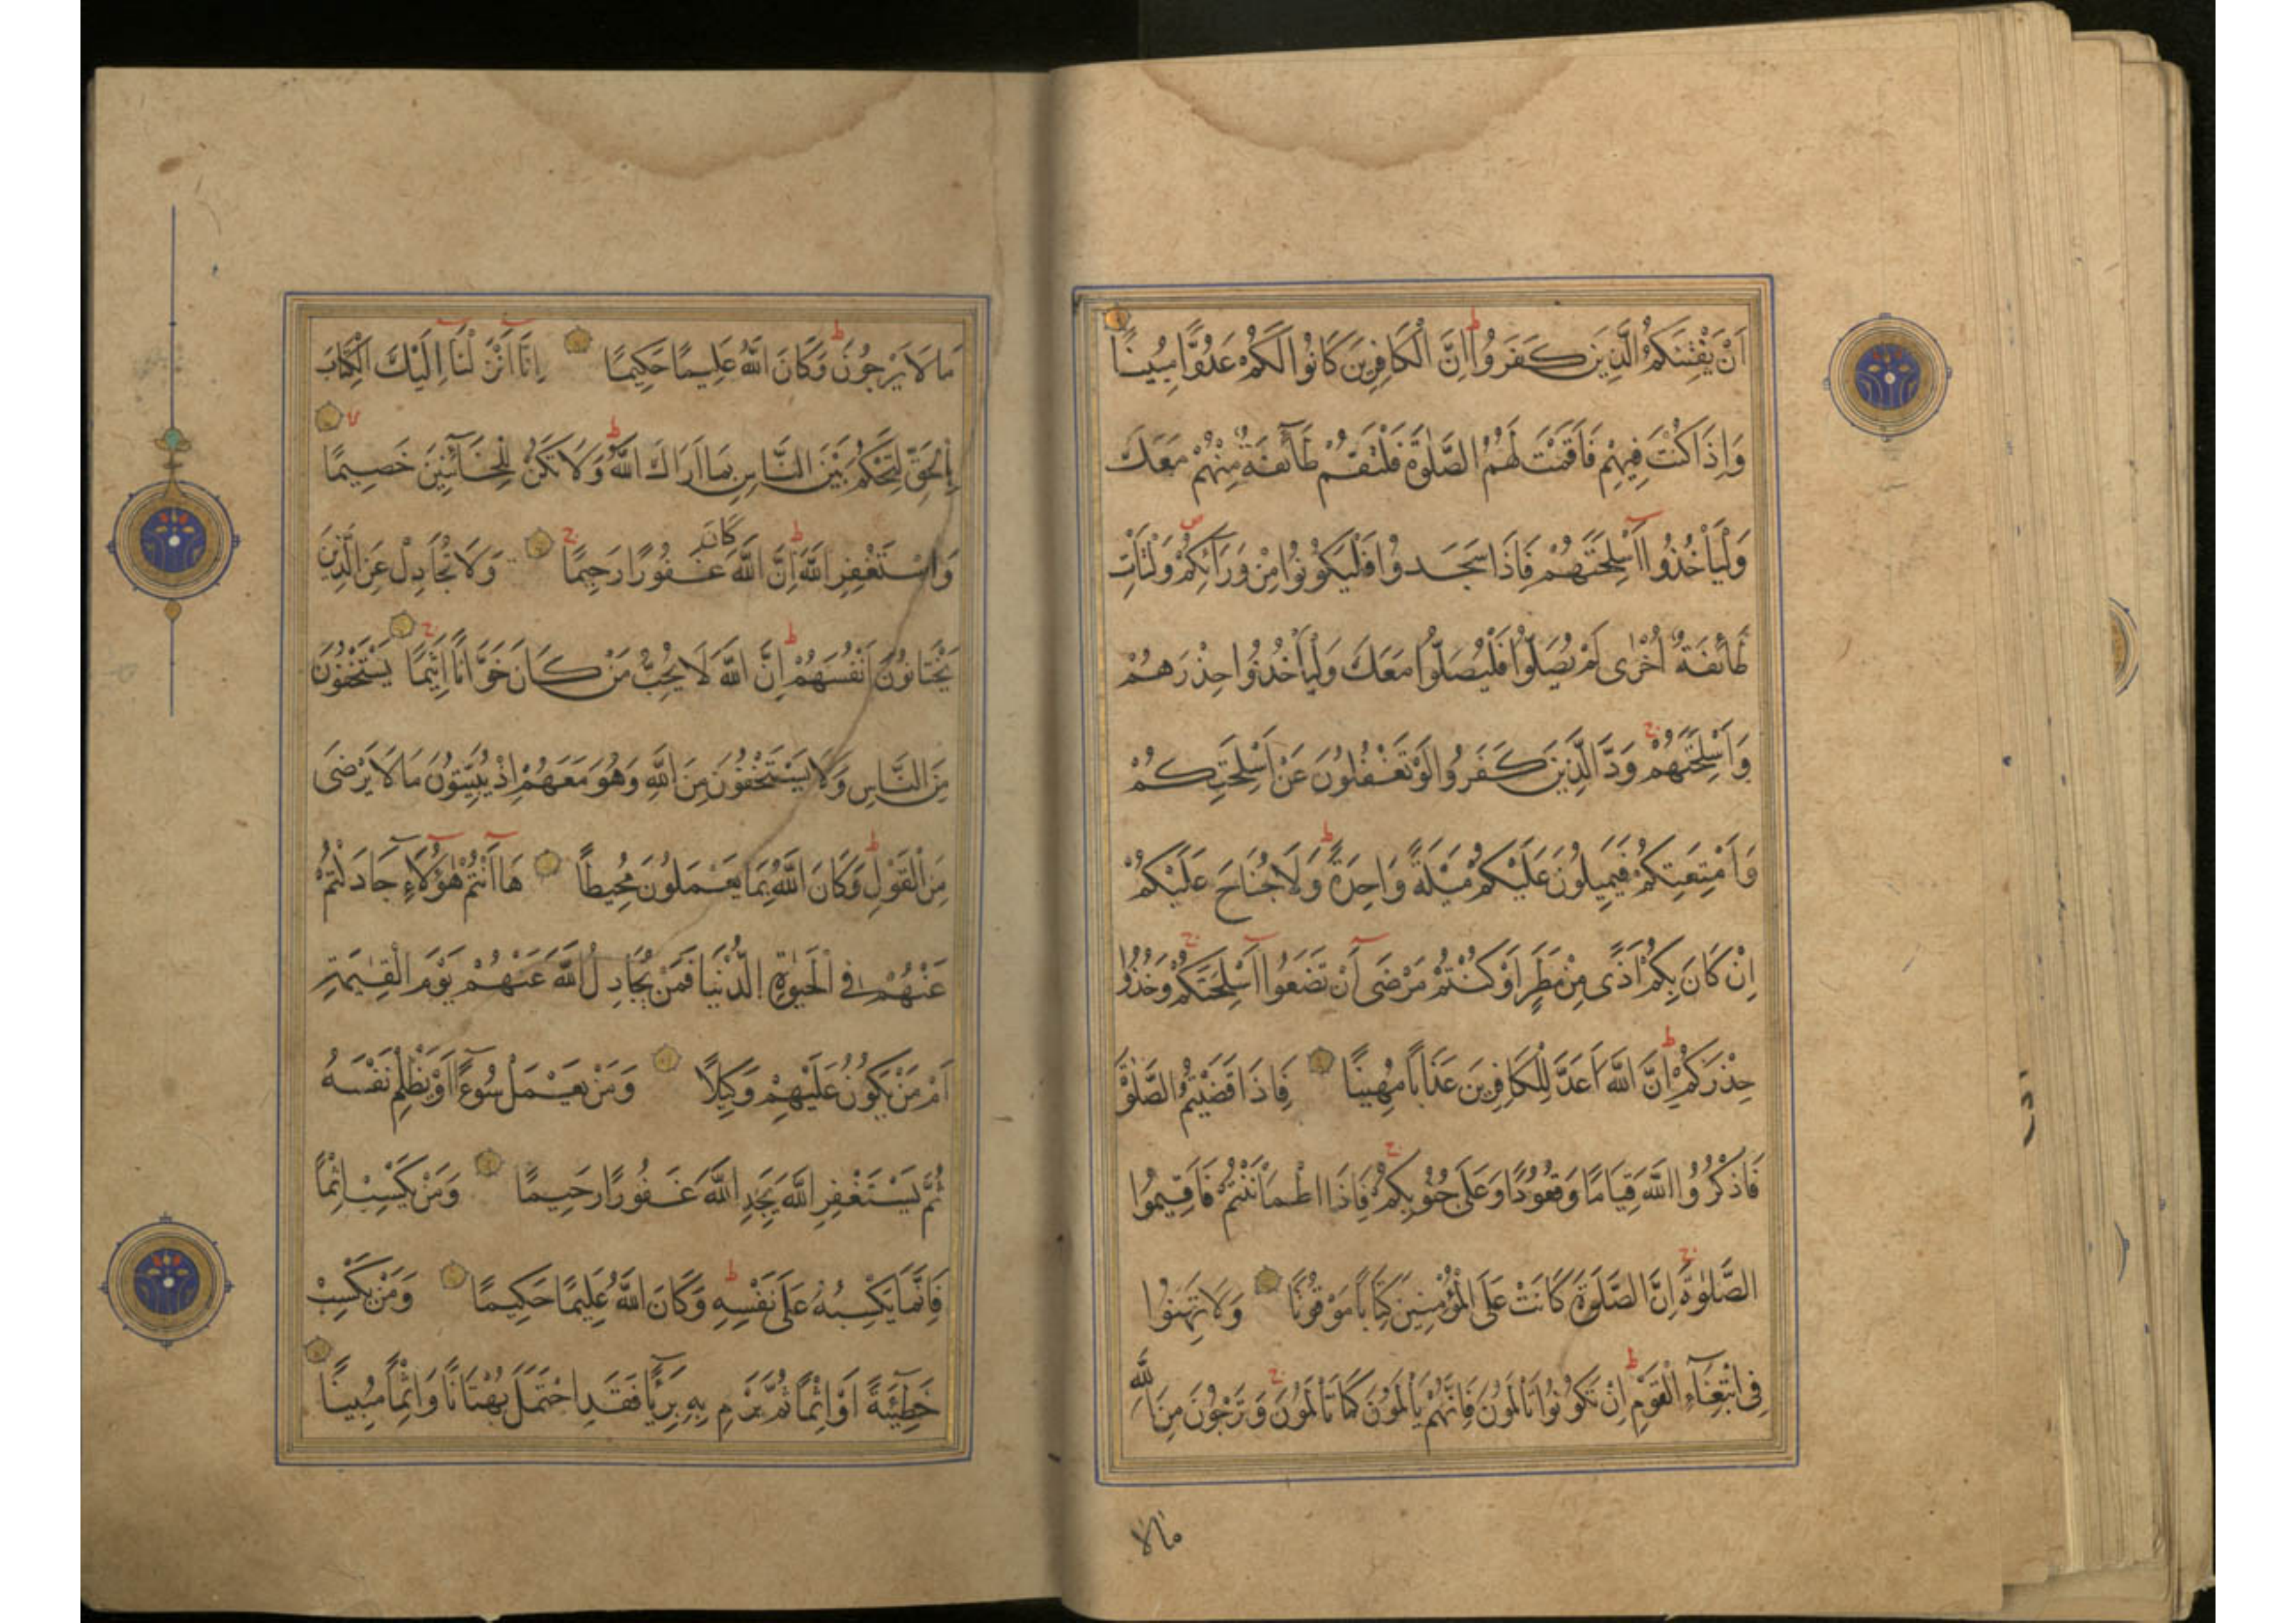 اَنْ يَفْتِنَكُمُ الَّذِينَ كَفَرُوا اِنَّ الْكَافِرِينَ كَانُوا لَكُمْ عَدُوًّا مُبِينًا
وَاِذَا كُنْتَ فِيهِمْ فَاَقَمْتَ لَهُمُ الصَّلٰوةَ فَلْتَقُمْ طَآئِفَةٌ مِنْهُمْ مَعَكَ
وَلْيَاْخُذُوا اَسْلِحَتَهُمْ فَاِذَا سَجَدُوا فَلْيَكُونُوا مِنْ وَرَآئِكُمْ وَلْتَاْتِ
طَآئِفَةٌ اُخْرٰى لَمْ يُصَلُّوا فَلْيُصَلُّوا مَعَكَ وَلْيَاْخُذُوا حِذْرَهُمْ
وَاَسْلِحَتَهُمْ وَدَّ الَّذِينَ كَفَرُوا لَوْ تَغْفُلُونَ عَنْ اَسْلِحَتِكُمْ
وَاَمْتِعَتِكُمْ فَيَمِيلُونَ عَلَيْكُمْ مَيْلَةً وَاحِدَةً وَلَا جُنَاحَ عَلَيْكُمْ
اِنْ كَانَ بِكُمْ اَذًى مِنْ مَطَرٍ اَوْ كُنْتُمْ مَرْضَى اَنْ تَضَعُوا اَسْلِحَتَكُمْ وَخُذُوا
حِذْرَكُمْ اِنَّ اللّٰهَ اَعَدَّ لِلْكَافِرِينَ عَذَابًا مُهِينًا فَاِذَا قَضَيْتُمُ الصَّلٰوةَ
فَاذْكُرُوا اللّٰهَ قِيَامًا وَقُعُودًا وَعَلَى جُنُوبِكُمْ فَاِذَا اطْمَاْنَنْتُمْ فَاَقِيمُوا
الصَّلٰوةَ اِنَّ الصَّلٰوةَ كَانَتْ عَلَى الْمُؤْمِنِينَ كِتَابًا مَوْقُوتًا وَلَا تَهِنُوا
فِى ابْتِغَآءِ الْقَوْمِ اِنْ تَكُونُوا تَاْلَمُونَ فَاِنَّهُمْ يَاْلَمُونَ كَمَا تَاْلَمُونَ وَتَرْجُونَ مِنَ اللّٰهِ
مالا
مَا لَا يَرْجُونَ وَكَانَ اللّٰهُ عَلِيمًا حَكِيمًا اِنَّا اَنْزَلْنَا اِلَيْكَ الْكِتَابَ
بِالْحَقِّ لِتَحْكُمَ بَيْنَ النَّاسِ بِمَا اَرَاكَ اللّٰهُ وَلَا تَكُنْ لِلْخَآئِنِينَ خَصِيمًا
وَاسْتَغْفِرِ اللّٰهَ اِنَّ اللّٰهَ كَانَ غَفُورًا رَحِيمًا وَلَا تُجَادِلْ عَنِ الَّذِينَ
يَخْتَانُونَ اَنْفُسَهُمْ اِنَّ اللّٰهَ لَا يُحِبُّ مَنْ كَانَ خَوَّانًا اَثِيمًا يَسْتَخْفُونَ
مِنَ النَّاسِ وَلَا يَسْتَخْفُونَ مِنَ اللّٰهِ وَهُوَ مَعَهُمْ اِذْ يُبَيِّتُونَ مَا لَا يَرْضَى
مِنَ الْقَوْلِ وَكَانَ اللّٰهُ بِمَا يَعْمَلُونَ مُحِيطًا هَا اَنْتُمْ هٰٓؤُلَآءِ جَادَلْتُمْ
عَنْهُمْ فِى الْحَيٰوةِ الدُّنْيَا فَمَنْ يُجَادِلُ اللّٰهَ عَنْهُمْ يَوْمَ الْقِيٰمَةِ
اَمْ مَنْ يَكُونُ عَلَيْهِمْ وَكِيلًا وَمَنْ يَعْمَلْ سُوءًا اَوْ يَظْلِمْ نَفْسَهُ
ثُمَّ يَسْتَغْفِرِ اللّٰهَ يَجِدِ اللّٰهَ غَفُورًا رَحِيمًا وَمَنْ يَكْسِبْ اِثْمًا
فَاِنَّمَا يَكْسِبُهُ عَلَى نَفْسِهِ وَكَانَ اللّٰهُ عَلِيمًا حَكِيمًا وَمَنْ يَكْسِبْ
خَطِيٓئَةً اَوْ اِثْمًا ثُمَّ يَرْمِ بِهِ بَرِيٓئًا فَقَدِ احْتَمَلَ بُهْتَانًا وَاِثْمًا مُبِينًا